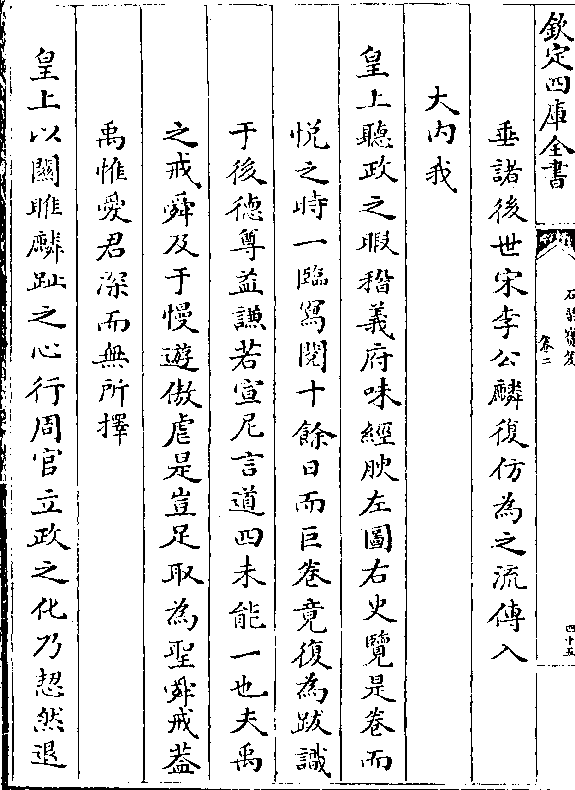 欽定四庫全書
石渠寶笈
卷二
四十五
垂諸後世宋李公麟復仿為之流傳入
大内我
皇上聽政之暇稽義府味經腴左圖右史覽是卷而
悅之時一臨寫閱十餘日而巨卷竟復為跋識
于後德尊益謙若宣尼言道四未能一也夫禹
之戒舜及于慢遊傲虐是豈足取為聖舜戒葢
禹惟愛君深而無所擇
皇上以關雎麟趾之心行周官立政之化乃惄然退